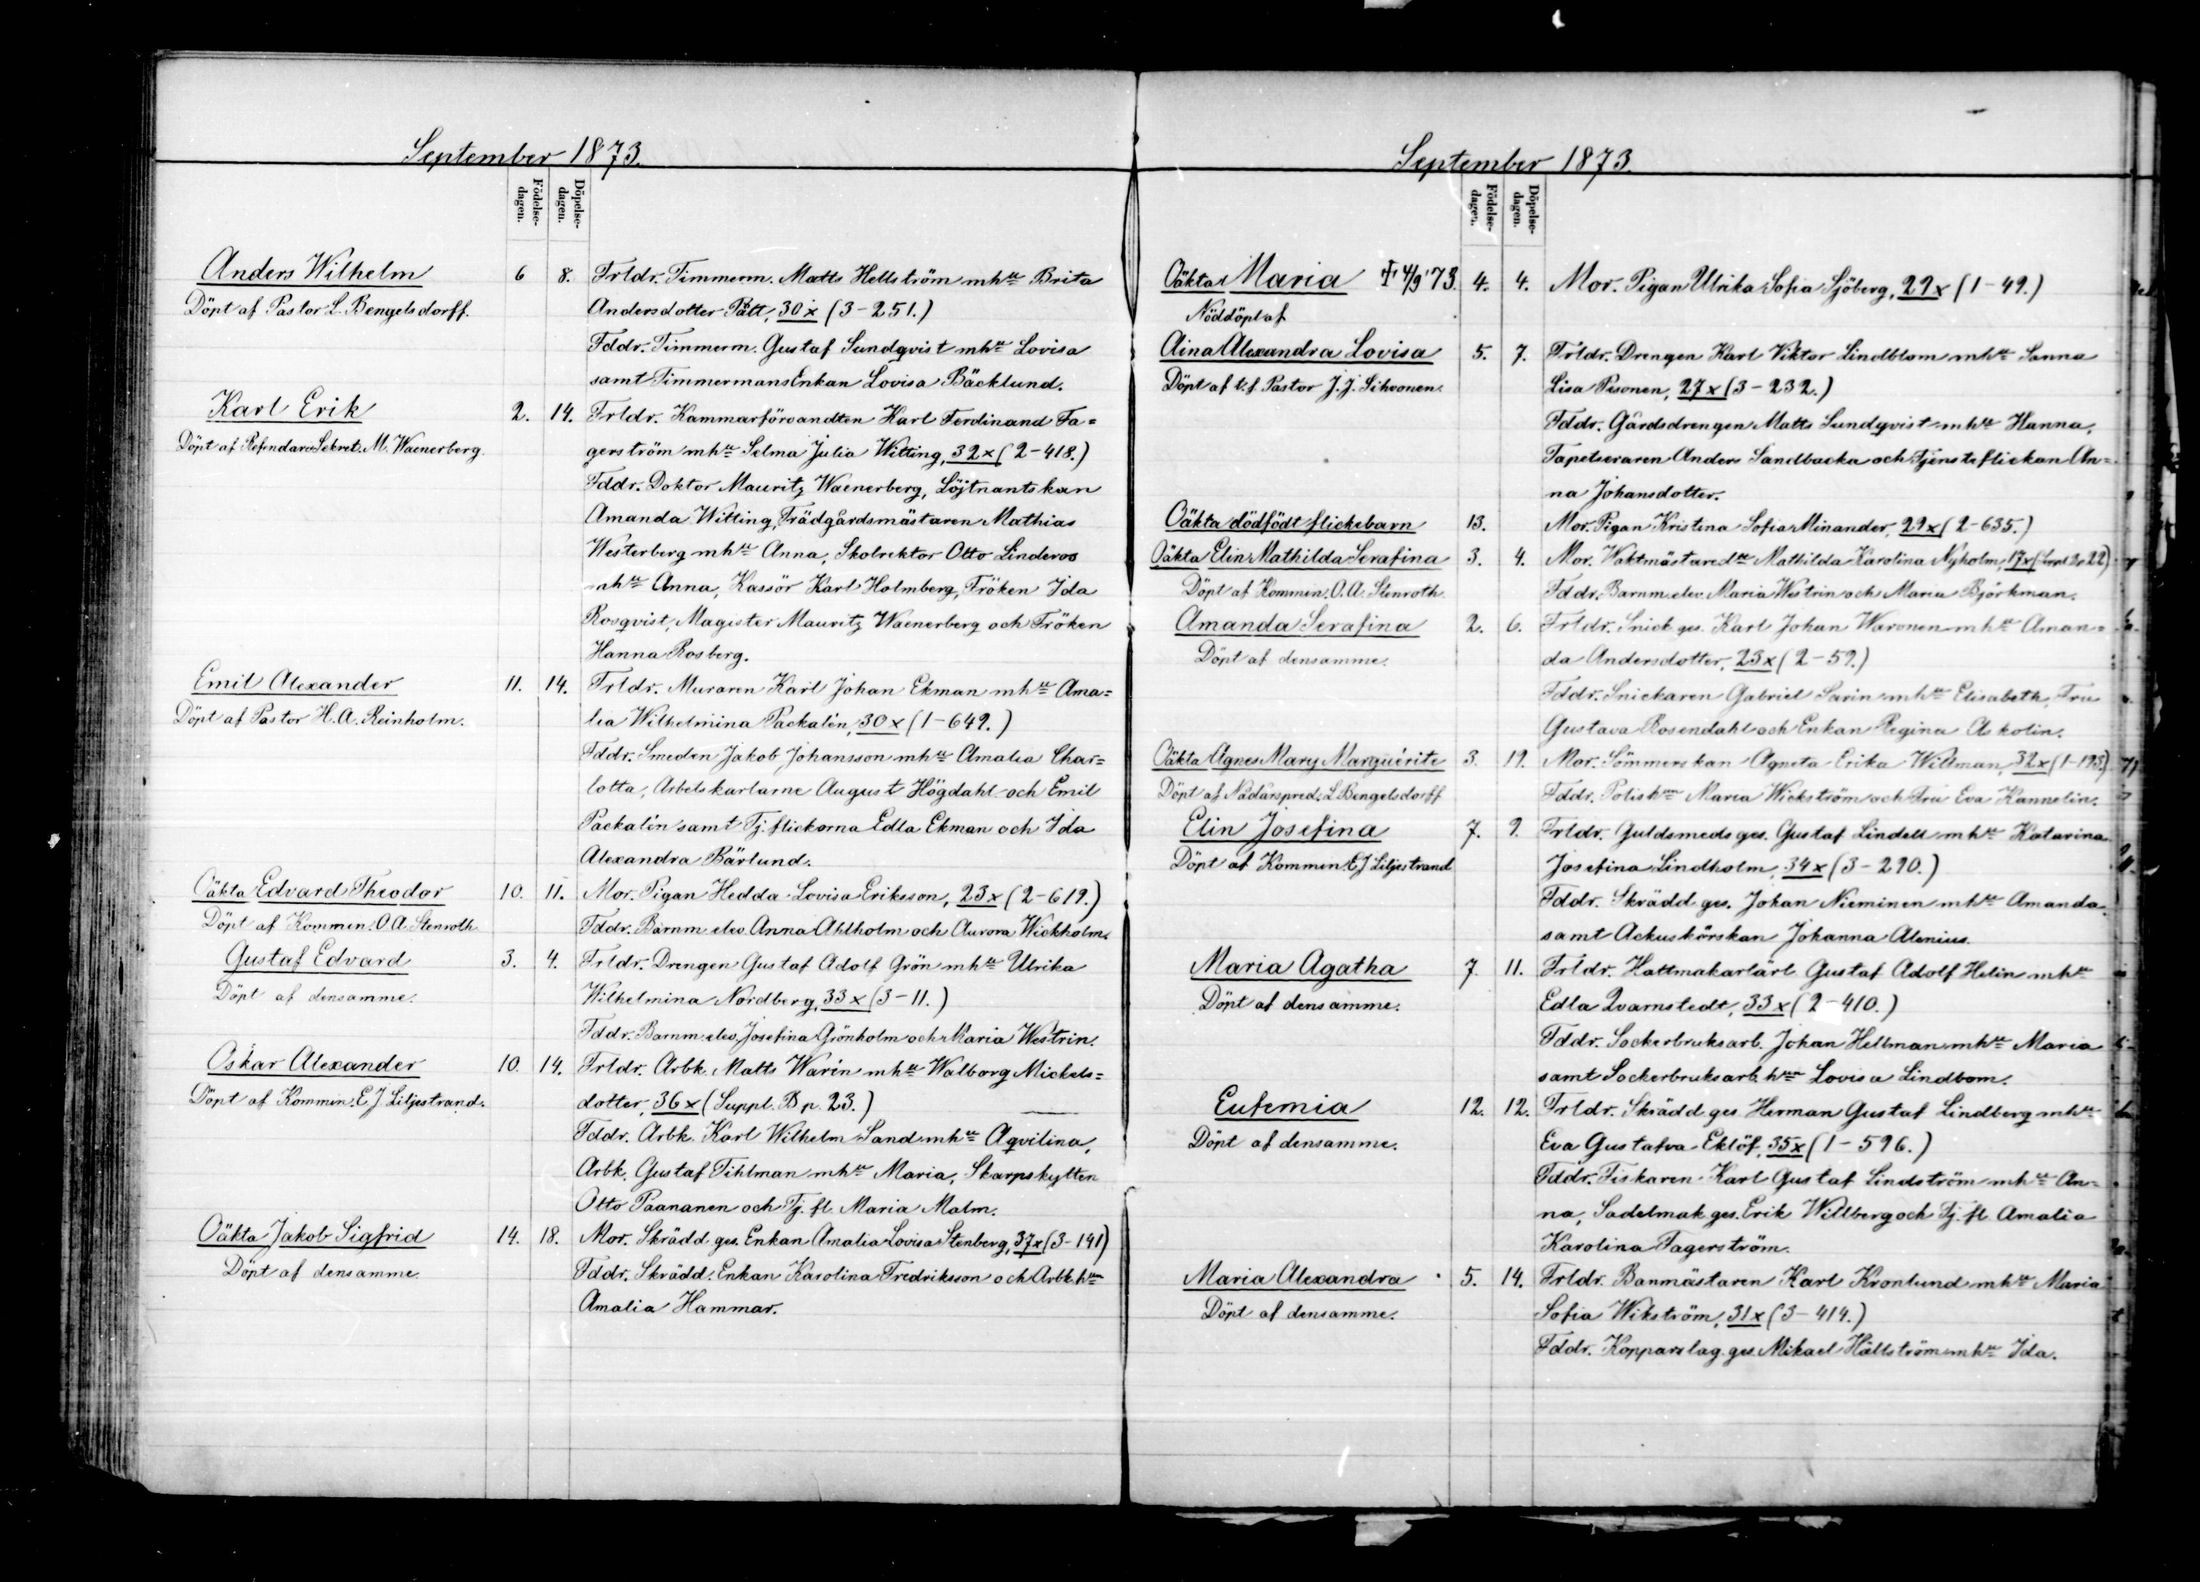 September 1873.
Födelse-dagen.
Döpelse-dagen.
Anders Wilhelm 6 8. Frldr. Timmerm. Matts Hellström mhu Brita
Döpt af Pastor L. Bengelsdorff. Andersdotter Pått, 30 x (3-251.)
Fddr. Timmerm. Gustaf Sundqvist mhu Lovisa
samt TimmermansEnkan Lovisa Bäcklund.
Karl Erik 2. 14. Frldr. Kammarförvandten Karl Ferdinand Fa=
Döpt af Referendarie Sekret. M. Waenerberg. gerström mhu Selma Julia Witting, 32 x (2-418.)
Fddr. Doktor Mauritz Waenerberg, Löjtnantskan
Amanda Witting, Trädgårdsmästaren Mathias
Westerberg mhu Anna, Skolrektor Otto Linderoos
mhu Anna, Kassör Karl Holmberg, Fröken Ida
Rosqvist, Magister Mauritz Waenerberg och Fröken
Hanna Rosberg.
Emil Alexander 11. 14. Frldr. Muraren Karl Johan Ekman mhu Ama=
Döpt af Pastor H. A. Reinholm. lia Wilhelmina Packalén, 30 x (1-649.)
Fddr. Smeden Jakob Johansson mhu Amalia Char=
lotta, Arbetskarlarne August Högdahl och Emil
Packalén samt Tj. flickorna Edla Ekman och Ida
Alexandra Bärlund.
Oäkta Edvard Theodor 10. 11. Mor. Pigan Hedda Lovisa Eriksson, 23 x (2-619.)
Döpt af Kommin. O. A. Stenroth Fddr. Barnm. elev. Anna Ahlholm och Aurora Wickholm.
Gustaf Edvard 3. 4. Frldr. Drengen Gustaf Adolf Grön mhu Ulrika
Döpt af densamme. Wilhelmina Nordberg, 33 x (3-11.)
Fddr. Barnm. elev. Josefina Grönholm och Maria Westrin.
Oskar Alexander 10. 14. Frldr. Arbk. Matts Warin mhu Walborg Mickels=
Döpt af Kommin. E. J. Liljestrand. dotter, 36 x (Suppl. B p. 23.)
Fddr. Arbk. Karl Wilhelm Sand mhu Aqvilina,
Arbk. Gustaf Tihlman mhu Maria, Skarpskytten
Otto Paananen och Tj. fl. Maria Malm.
Oäkta Jakob Sigfrid 14. 18. Mor. Skrädd. ges. Enkan Amalia Lovisa Stenberg, 37 x (3-141)
Döpt af densamme. Fddr. Skrädd. Enkan Karolina Fredriksson och Arbk. hun
Amalia Hammar.
September 1873.
Födelse-dagen.
Döpelse-dagen.
Oäkta Maria † 4/9 '73. 4. 4. Mor. Pigan Ulrika Sofia Sjöberg, 29 x (1-49.)
Nöddöpt af
Aina Alexandra Lovisa 5. 7. Frldr. Drengen Karl Viktor Lindblom mhu Sanna
Döpt af t.f. Pastor J. J. Sihvonen. Lisa Pisonen, 27 x (3-232.)
Fddr. Gårdsdrengen Matts Sundqvist mhu Hanna,
Tapetseraren Anders Sandbacka och tjensteflickan An=
na Johansdotter.
Oäkta dödfödt flickebarn 13. Mor. Pigan Kristina Sofia Minander, 29 x (2-635.)
Oäkta Elin Mathilda Serafina 3. 4. Mor. Waktmästaredr Mathilda Karolina Nyholm, 17 x (Suppl. B p 22)
Döpt af Kommin. O. A. Stenroth. Fddr. Barnm. elev. Maria Westrin och Maria Björkman.
Amanda Serafina 2. 6. Frldr. Snick. ges. Karl Johan Waronen mhu Aman=
Döpt af densamme. da Andersdotter, 23 x (2-59.)
Fddr. Snickaren Gabriel Sarin mhu Elisabeth, Fru
Gustava Rosendahl och Enkan Regina Askolin.
Oäkta Agnes Mary Marguérite 3. 19. Mor. Sömmerskan Agneta Erika Willman, 32 x (1-193.)
Döpt af Nådårspred. L. Bengelsdorff Fddr. Polishun Maria Wickström och Fru Eva Kannelin.
Elin Josefina 7. 9. Frldr. Guldsmeds ges. Gustaf Lindell mhu Katarina
Döpt af Kommin. E J Liljestrand Josefina Lindholm, 34 x (3-290.)
Fddr. Skrädd. ges. Johan Nieminen mhu Amanda,
samt Ackuskörskan Johanna Alenius.
Maria Agatha 7. 11. Frldr. Hattmakarlärl. Gustaf Adolf Helin mhu
Döpt af densamme. Edla Qvarnstedt, 33 x (2-410.)
Fddr. Sockerbruksarb. Johan Hellman mhu Maria
samt Sockerbruksarb. hun Lovisa Lindbom.
Eufemia 12. 12. Frldr. Skrädd. ges. Herman Gustaf Lindberg mhu
Döpt af densamme. Eva Gustafva Eklöf, 35 x (1-596.)
Fddr. Fiskaren Karl Gustaf Lindström mhu An=
na, Sadelmak. ges. Erik Willberg och Tj. fl. Amalia
Karolina Fagerström.
Maria Alexandra 5. 14. Frldr. Banmästaren Karl Kronlund mhu Maria
Döpt af densamme. Sofia Wikström, 31 x (3-414.)
Fddr. Kopparslag. ges. Mikael Hällström mhu Ida.